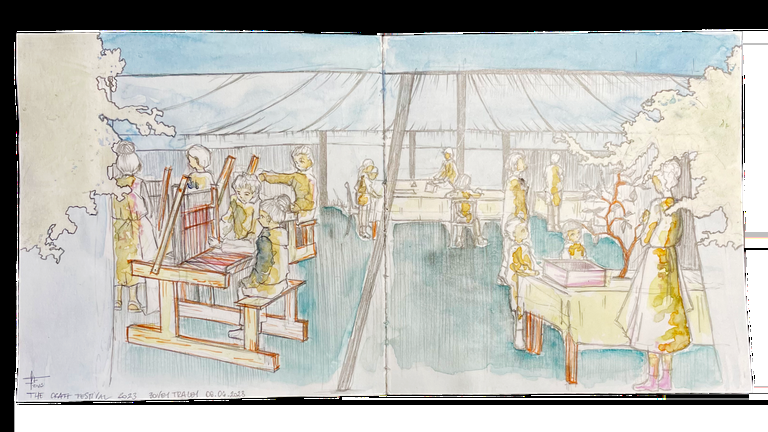 THE CRAFT FESTIVAL 2023 BOVEY TRACEY 08.06.2023